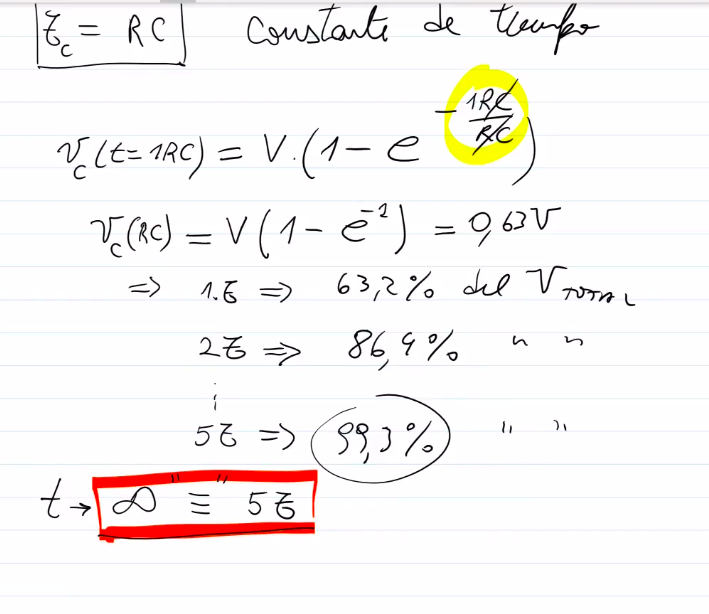 τc = RC constante de tiempo
vc(t=1RC) = V.(1-e^-1RC/RC)
vc(RC) = V(1-e^-1) = 0,63V
=> 1.τ => 63,2% del VTOTAL
2τ => 86,4% " "
⋮
5τ => 99,3% " "
t→ "∞" ≡ 5τ